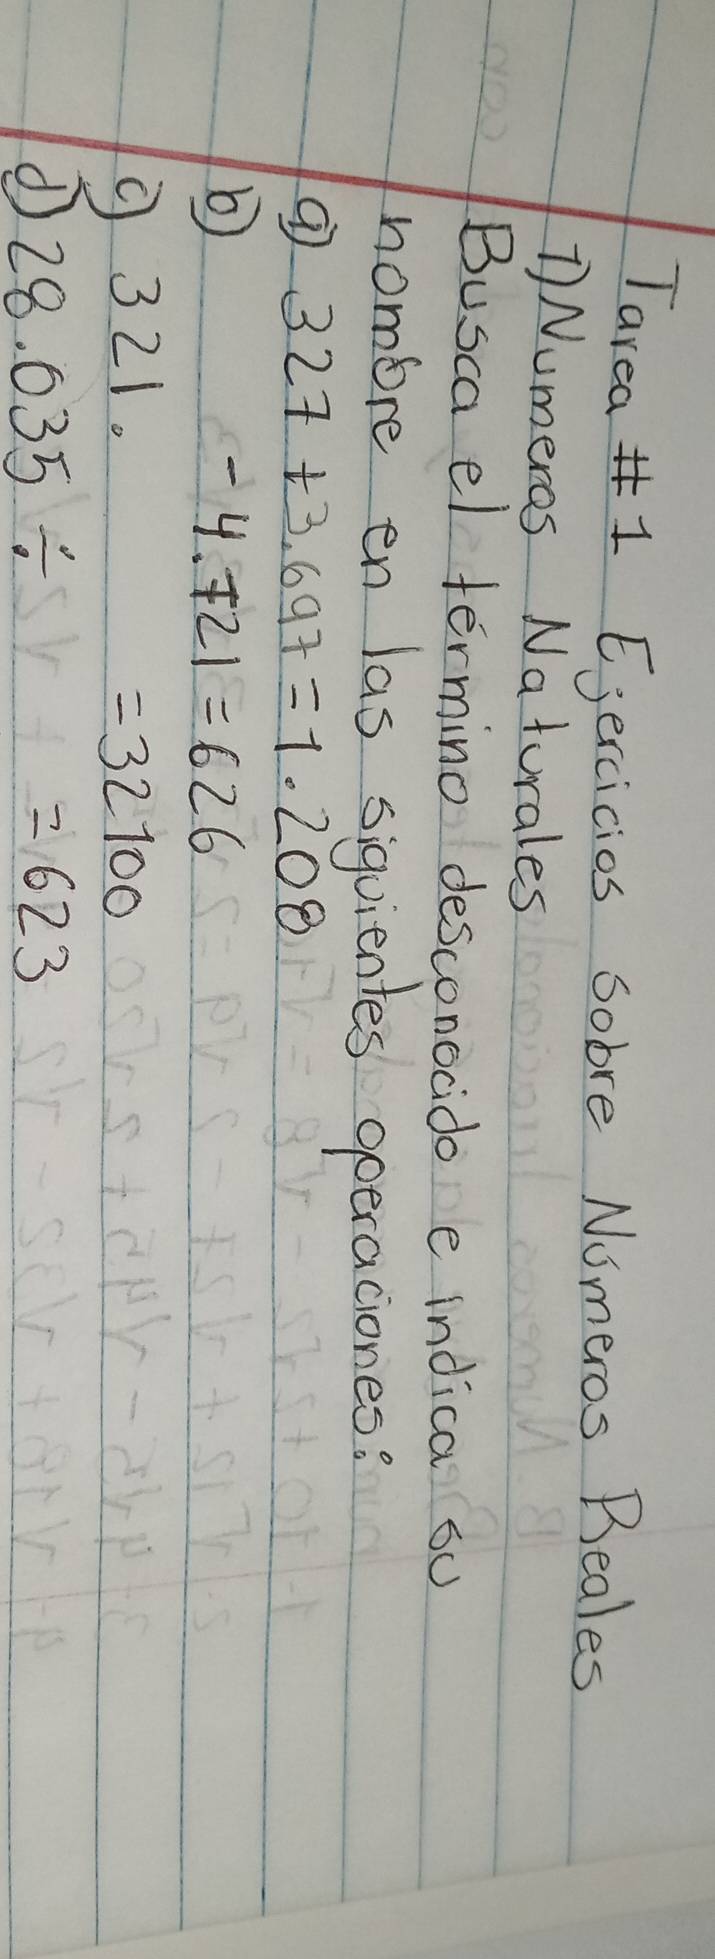 Tarea #1 Ejercicios sobre Números Reales
1) Numeros Naturales
Busca el término desconocido e indica su
nombre en las siguientes operaciones:
a) 327 + 3.697 = 1.208
b) - 4.721 = 626
c) 321. = 32100
d) 28.035 ÷ = 623